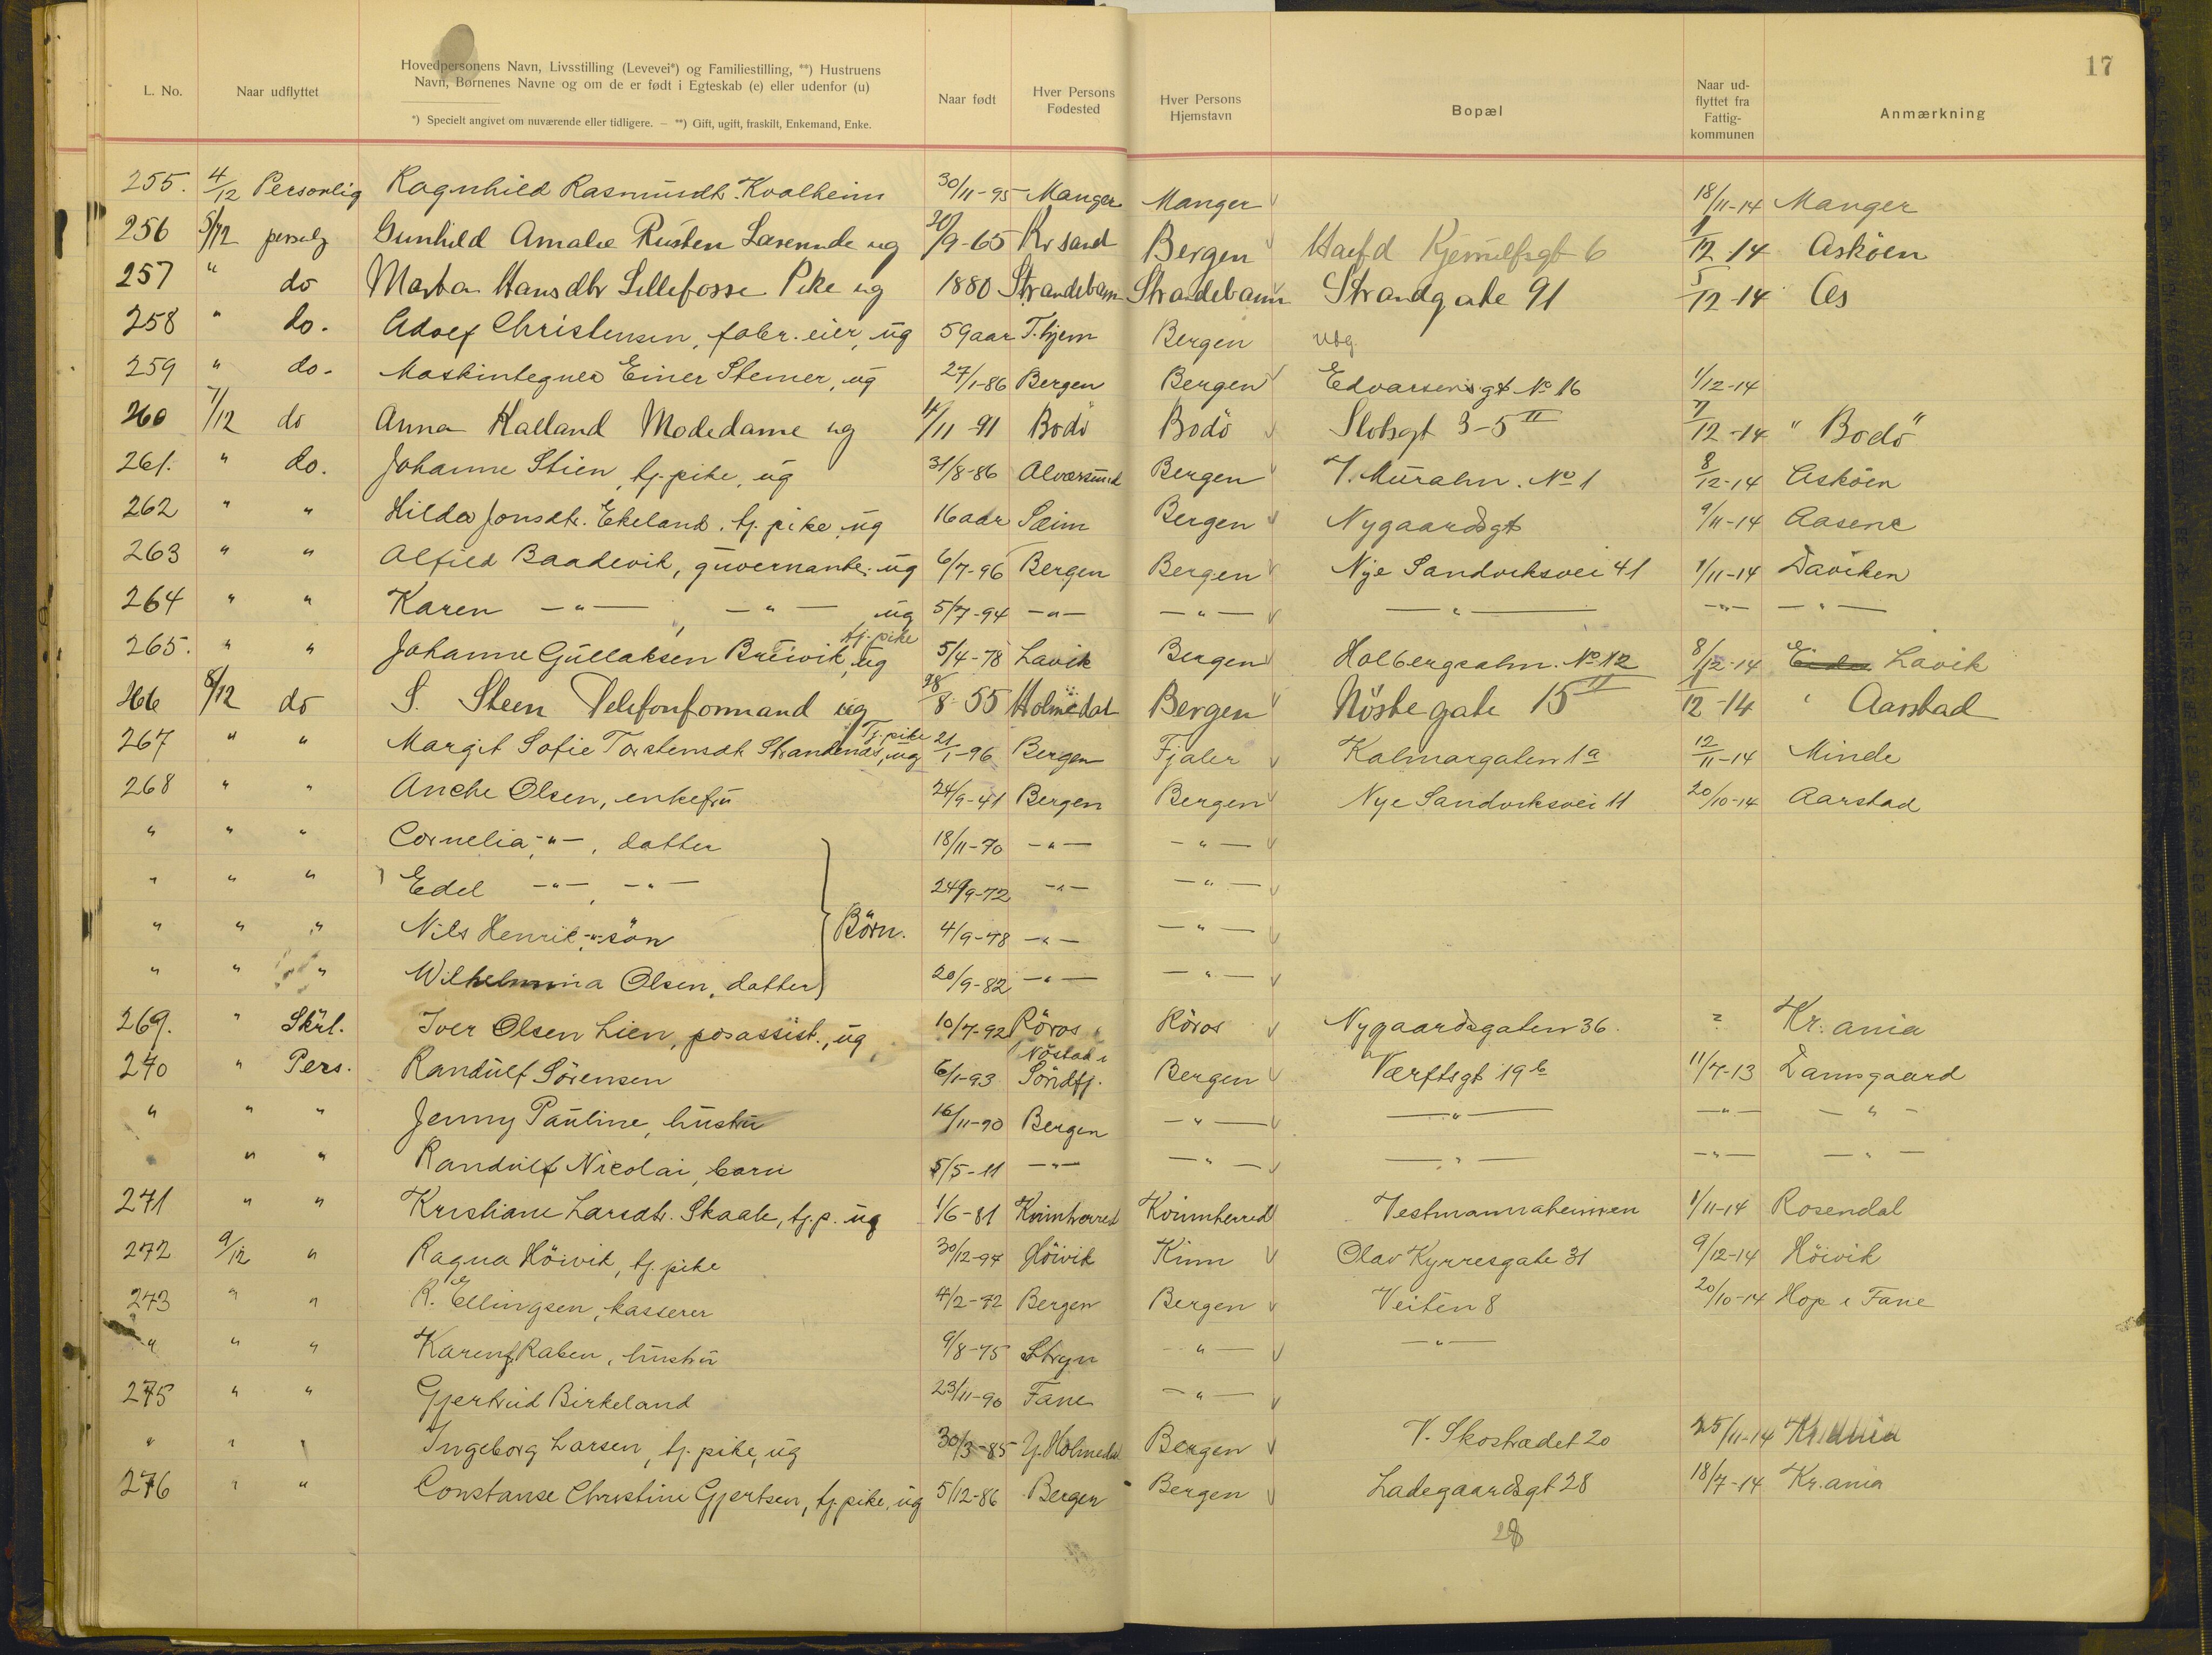 17
L. No.
Naar udflyttet
Hovedpersonens Navn, Livsstilling (Levevei*) og Familiestilling, **) Hustruens
Navn, Børnenes Navne og om de er født i Egteskab (e) eller udenfor (u)
*) Specielt angivet om nuværende eller tidligere. — **) Gift, ugift, fraskilt, Enkemand, Enke.
Naar født
Hver Persons
Fødested
Hver Persons
Hjemstavn
Bopæl
Naar ud-
flyttet fra
Fattig-
kommunen
Anmærkning
255. 4/12 Personlig Ragnhild Rasmusdtr. Kvalheim 30/11-95 Manger Manger 18/11-14 Manger
256 5/12 Gunhild Amalie Rusten Lærerinde ug 20/9-65 Kr sand Bergen 6 1/12 14 Askøen
257 " do Marta Hansdtr Lillefosse Pike ug 1880 Strandebarm Strandebarm Strandgate 91 5/12-14 Os
258 " do. Adolf Christensen, fabr. eier, ug 59 aar T.hjem Bergen
259 " do. Maskintegner Einer Stener, ug 27/1-86 Bergen Bergen Edvarsensgt No 16 1/12-14
260 7/12 do Anna Halland Modedame ug 11/11-91 Bodö Bodö Slotsgt 3-5 II 7/12-14 " Bodö"
261. " do. Johanne Stien, tj. pike, ug 31/8-86 Alversund Bergen V. Muralm. No 1 8/12-14 Asköen
262 " " Hilda Jonsdtr. Ekeland, tj. pike, ug 16 aar Sæim Bergen Nygaardsgt 9/11-14 Aasene
263 " " Alfild Baadevik, guvernante, ug 6/7-96 Bergen Bergen Nye Sandviksvei 41 1/11-14 Daviken
264 " " Karen —"—, —"— ug 5/7-94 —"— —"— —"— —"— —"—
265. " " Johanne Gullaksen Breivik, tj. pike ug 5/4-78 Lavik Bergen Holbergsalm. No 12 8/12-14 Eide Lavik
266 8/12 do S. Steen Telefonformand ug 28/8 55 Holmedal Bergen Nöstegate 15 II 1/12-14 " Aarstad
267 " " Margit Sofie Torstensdt. Strandenæs, Tj. pike ug 21/1-96 Bergen Fjaler Kalmargaten 1a 12/11-14 Minde
268 " " Anche Olsen, enkefru 24/9-41 Bergen Bergen Nye Sandviksvei 11 20/10-14 Aarstad
" " " Cornelia —"—, datter 18/11-70 —"— —"—
" " " Edel —"—, —"— 24/9-72 —"— —"—
" " " Nils Henrik —"— sön Börn. 4/9-78 —"— —"—
" " " Wilhelmina Olsen, datter 20/9-82 —"— —"—
269. " Skrl. Iver Olsen Lien, posassist., ug 10/7-92 Röros Röros Nygaardsgaten 36. ? Kr.ania
270 " Pers. Randulf Sörensen 6/1-93 Nöstad i Söndfj. Bergen Værftsgt 19b 11/7-13 Damsgaard
" " " Jenny Pauline, hustru 16/11-90 Bergen —"— —"— —"— —"—
" " " Randulf Nicolai, barn 5/5-11 —"— —"— —"— —"— —"—
271 " " Kristiane Larsdtr. Skaale, tj.p. ug 1/6-81 Kvinnherred Kvinnherred Vestmannaheimen 1/11-14 Rosendal
272 9/12 " Ragna Höivik, tj. pike 30/12-94 Höivik Kinn Olav Kyrresgate 31 9/12-14 Höivik
273 " " R. Ellingsen, kasserer 4/2-72 Bergen Bergen Veiten 8 20/10-14 Hop i Fane
" " " Karen Raben, hustru 9/8-75 Stryn —"— —"—
275 " " Gjertrud Birkeland 23/11-90 Fane —"—
" " " Ingeborg Larsen, tj. pike, ug 30/3-85 Y. Holmedal Bergen V. Skostrædet 20 25/11-14 Kr.ania
276 " " Constanse Christine Gjertsen, tj. pike, ug 5/12-86 Bergen Bergen Ladegaardsgt 28 18/7-14 Kr.ania
28